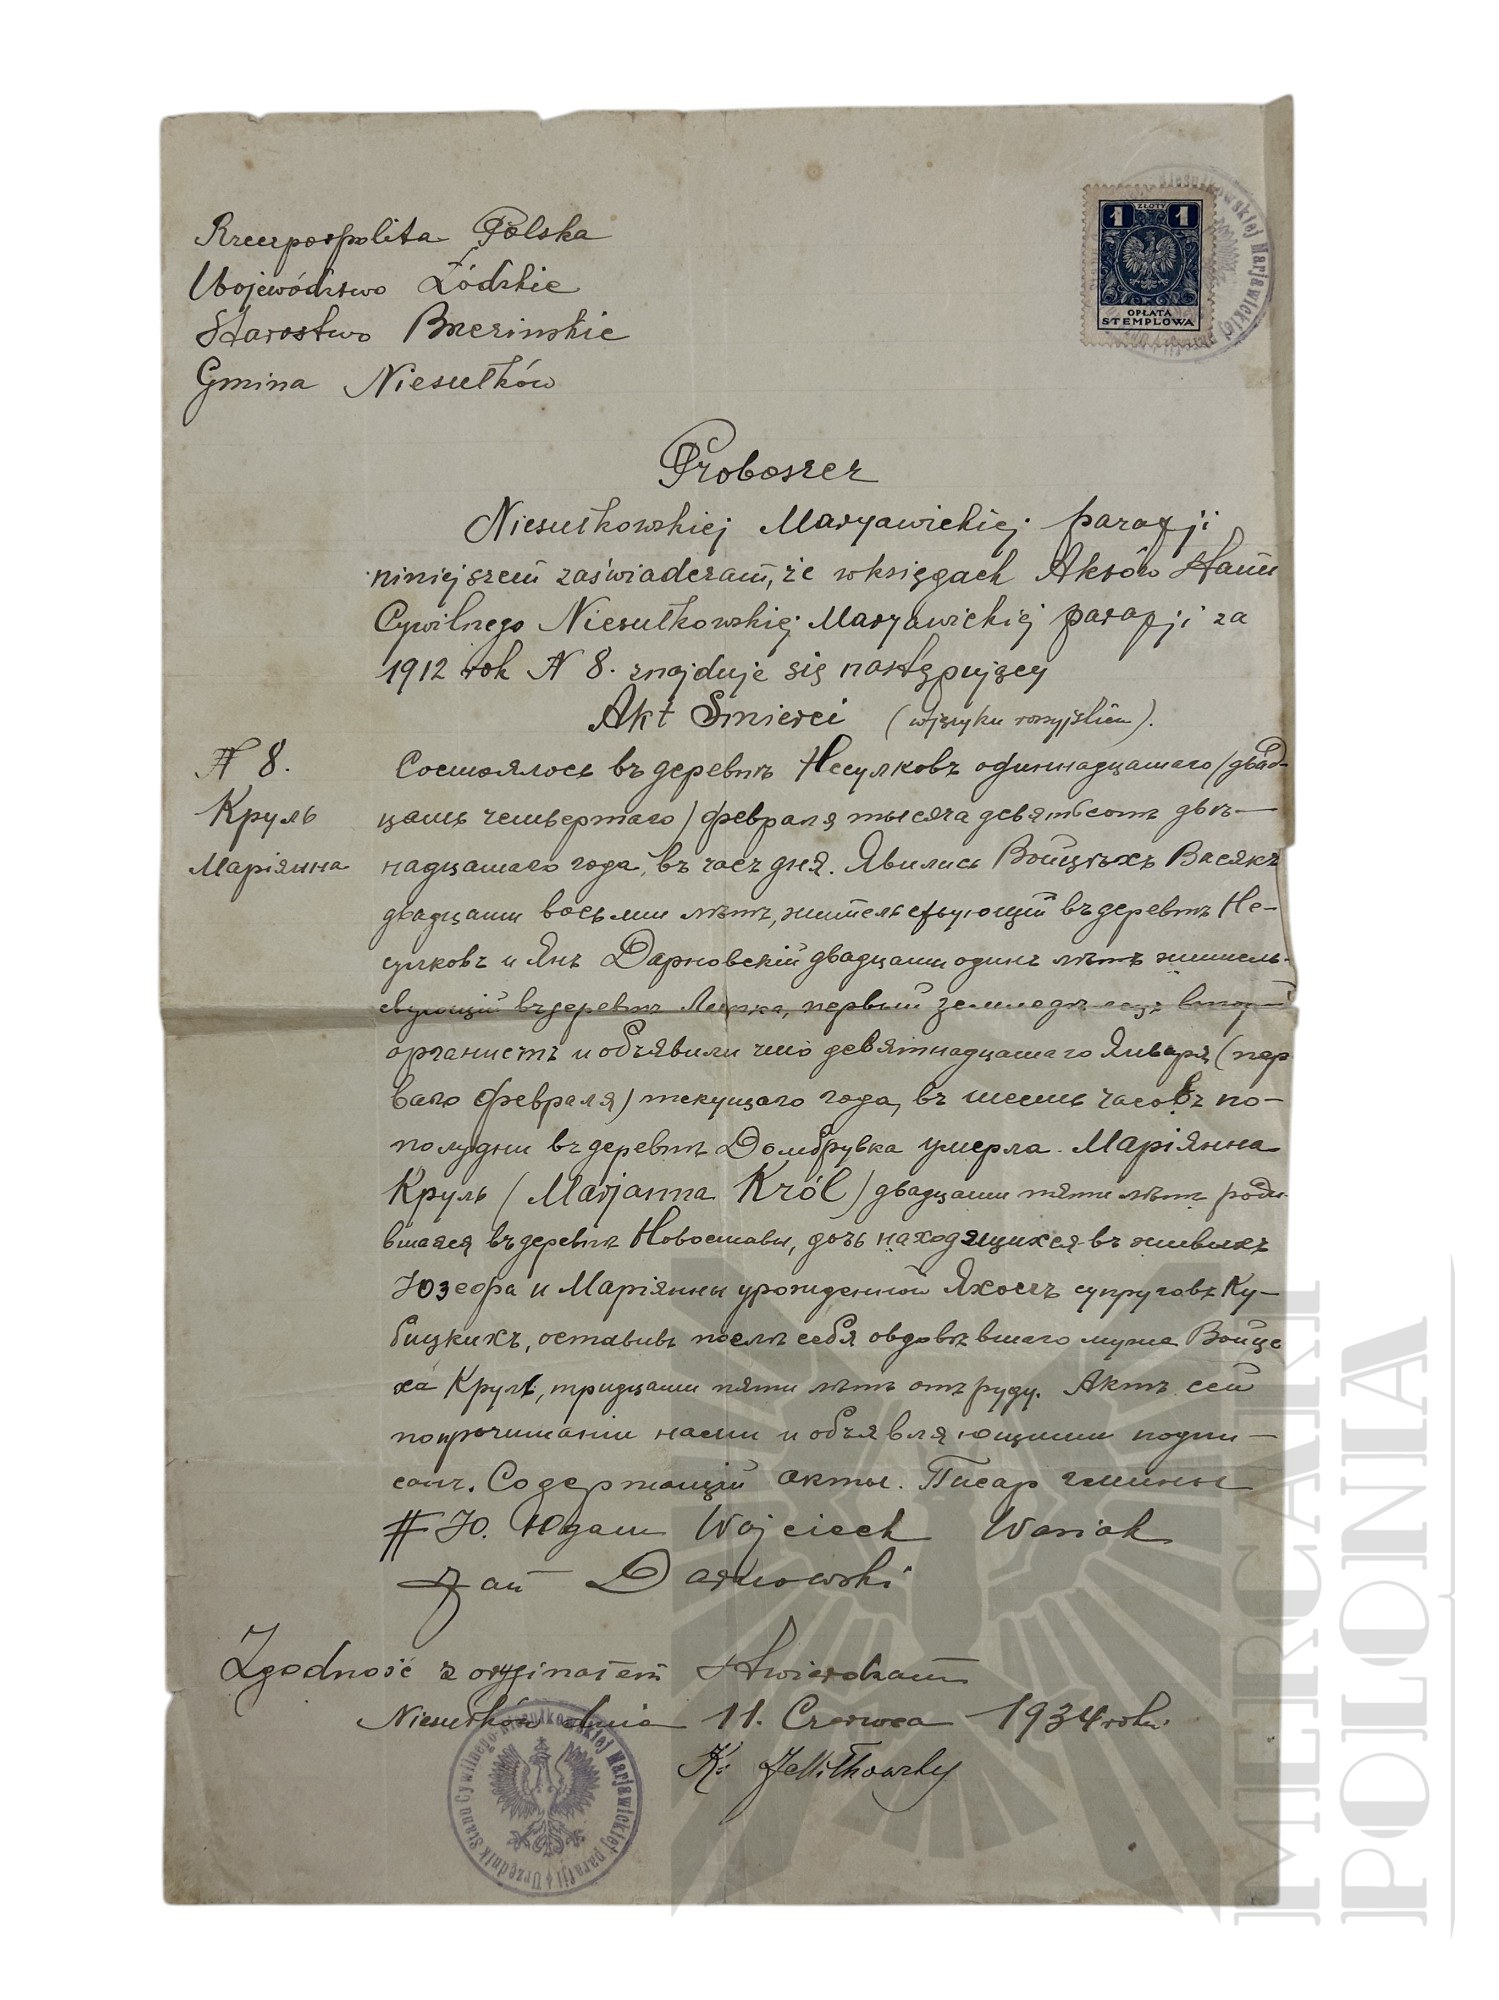 Rzeczpospolita Polska
Województwo Łódzkie
Starostwo Brzezinskie
Gmina Niesułków
1 ZŁOTY 1
OPŁATA
STEMPLOWA
Proboszcz
Niesułkowskiej Maryawickiej parafji
niniejszem zaświadczam, że w księgach Aktów Stanu
Cywilnego Niesułkowskiej Maryawickiej parafji za
1912 rok N 8. znajduje się następujący
Akt Smierci (w języku rosyjskim).
N 8.
Круль
Маріянна
Состоялось въ деревнѣ Несулковъ одиннадцатаго /двад-
цать четвертаго/ февраля тысяча девятьсотъ двѣ-
надцатаго года, въ часъ дня. Явились Войцѣхъ Васякъ
двадцати восьми лѣтъ, жительствующій въ деревнѣ Не-
сулковъ и Янъ Дарновскій двадцати одинъ лѣтъ житель-
ствующій въ деревнѣ Липка, первый земледѣлецъ второй
органистъ и объявили что девятнадцатаго Января (пер
ваго февраля) текущаго года, въ шесть часовъ по-
полудни въ деревнѣ Домбрувка умерла Маріянна
Круль (Marjanna Król) двадцати пяти лѣтъ роди-
вшаяся въ деревнѣ Новоставы, дочь находящихся въ живыхъ
Юзефа и Маріянны урожденной Яхосъ супруговъ Ку-
бицкихъ, оставивъ послѣ себя овдовѣвшаго мужа Войце
ха Круль, тридцати пяти лѣтъ отъ руду. Актъ сей
по прочитаніи нами и объявляющими подпи-
санъ. Содержащій акты. Писар гмины
Ю. Юдаш Wojciech Wasiak
Jan Darnowski
Zgodność z oryginałem stwierdzam
Niesułków dnia 11. Czerwca 1934 roku
Urzędnik Stanu Cywilnego Niesułkowskiej Marjawickiej parafji
IMIERCARKI
POLONIA